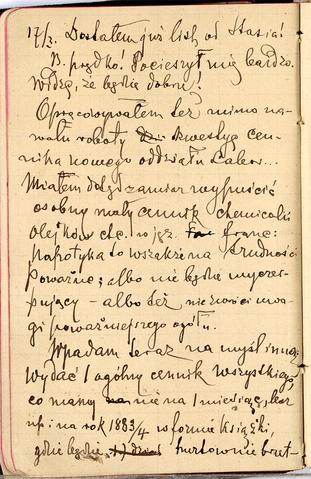 17/2. Dostałem już list od Stasia!
B. prędko! Pocieszył mię bardzo.
Widzę, że będzie dobry!
Opracowywałem też mimo na-
wału roboty kwestyę cen-
nika nowego oddziału
Miałem dotąd zamiar wypuścić
osobny mały cennik chemicalii
olejków etc. w jęz. franc:
napotyka to wszakże na trudności
poważne; albo nie będzie wyczer-
pujący – albo też nie zwróci uwa-
gi poważniejszego ogółu.
Wpadam teraz na myśl inną:
wydać 1 ogólny cennik wszystkiego,
co mamy nie na 1 miesiąc, lecz
np: na rok 1883/4 w formie książki,
gdzie będzie hurtownie